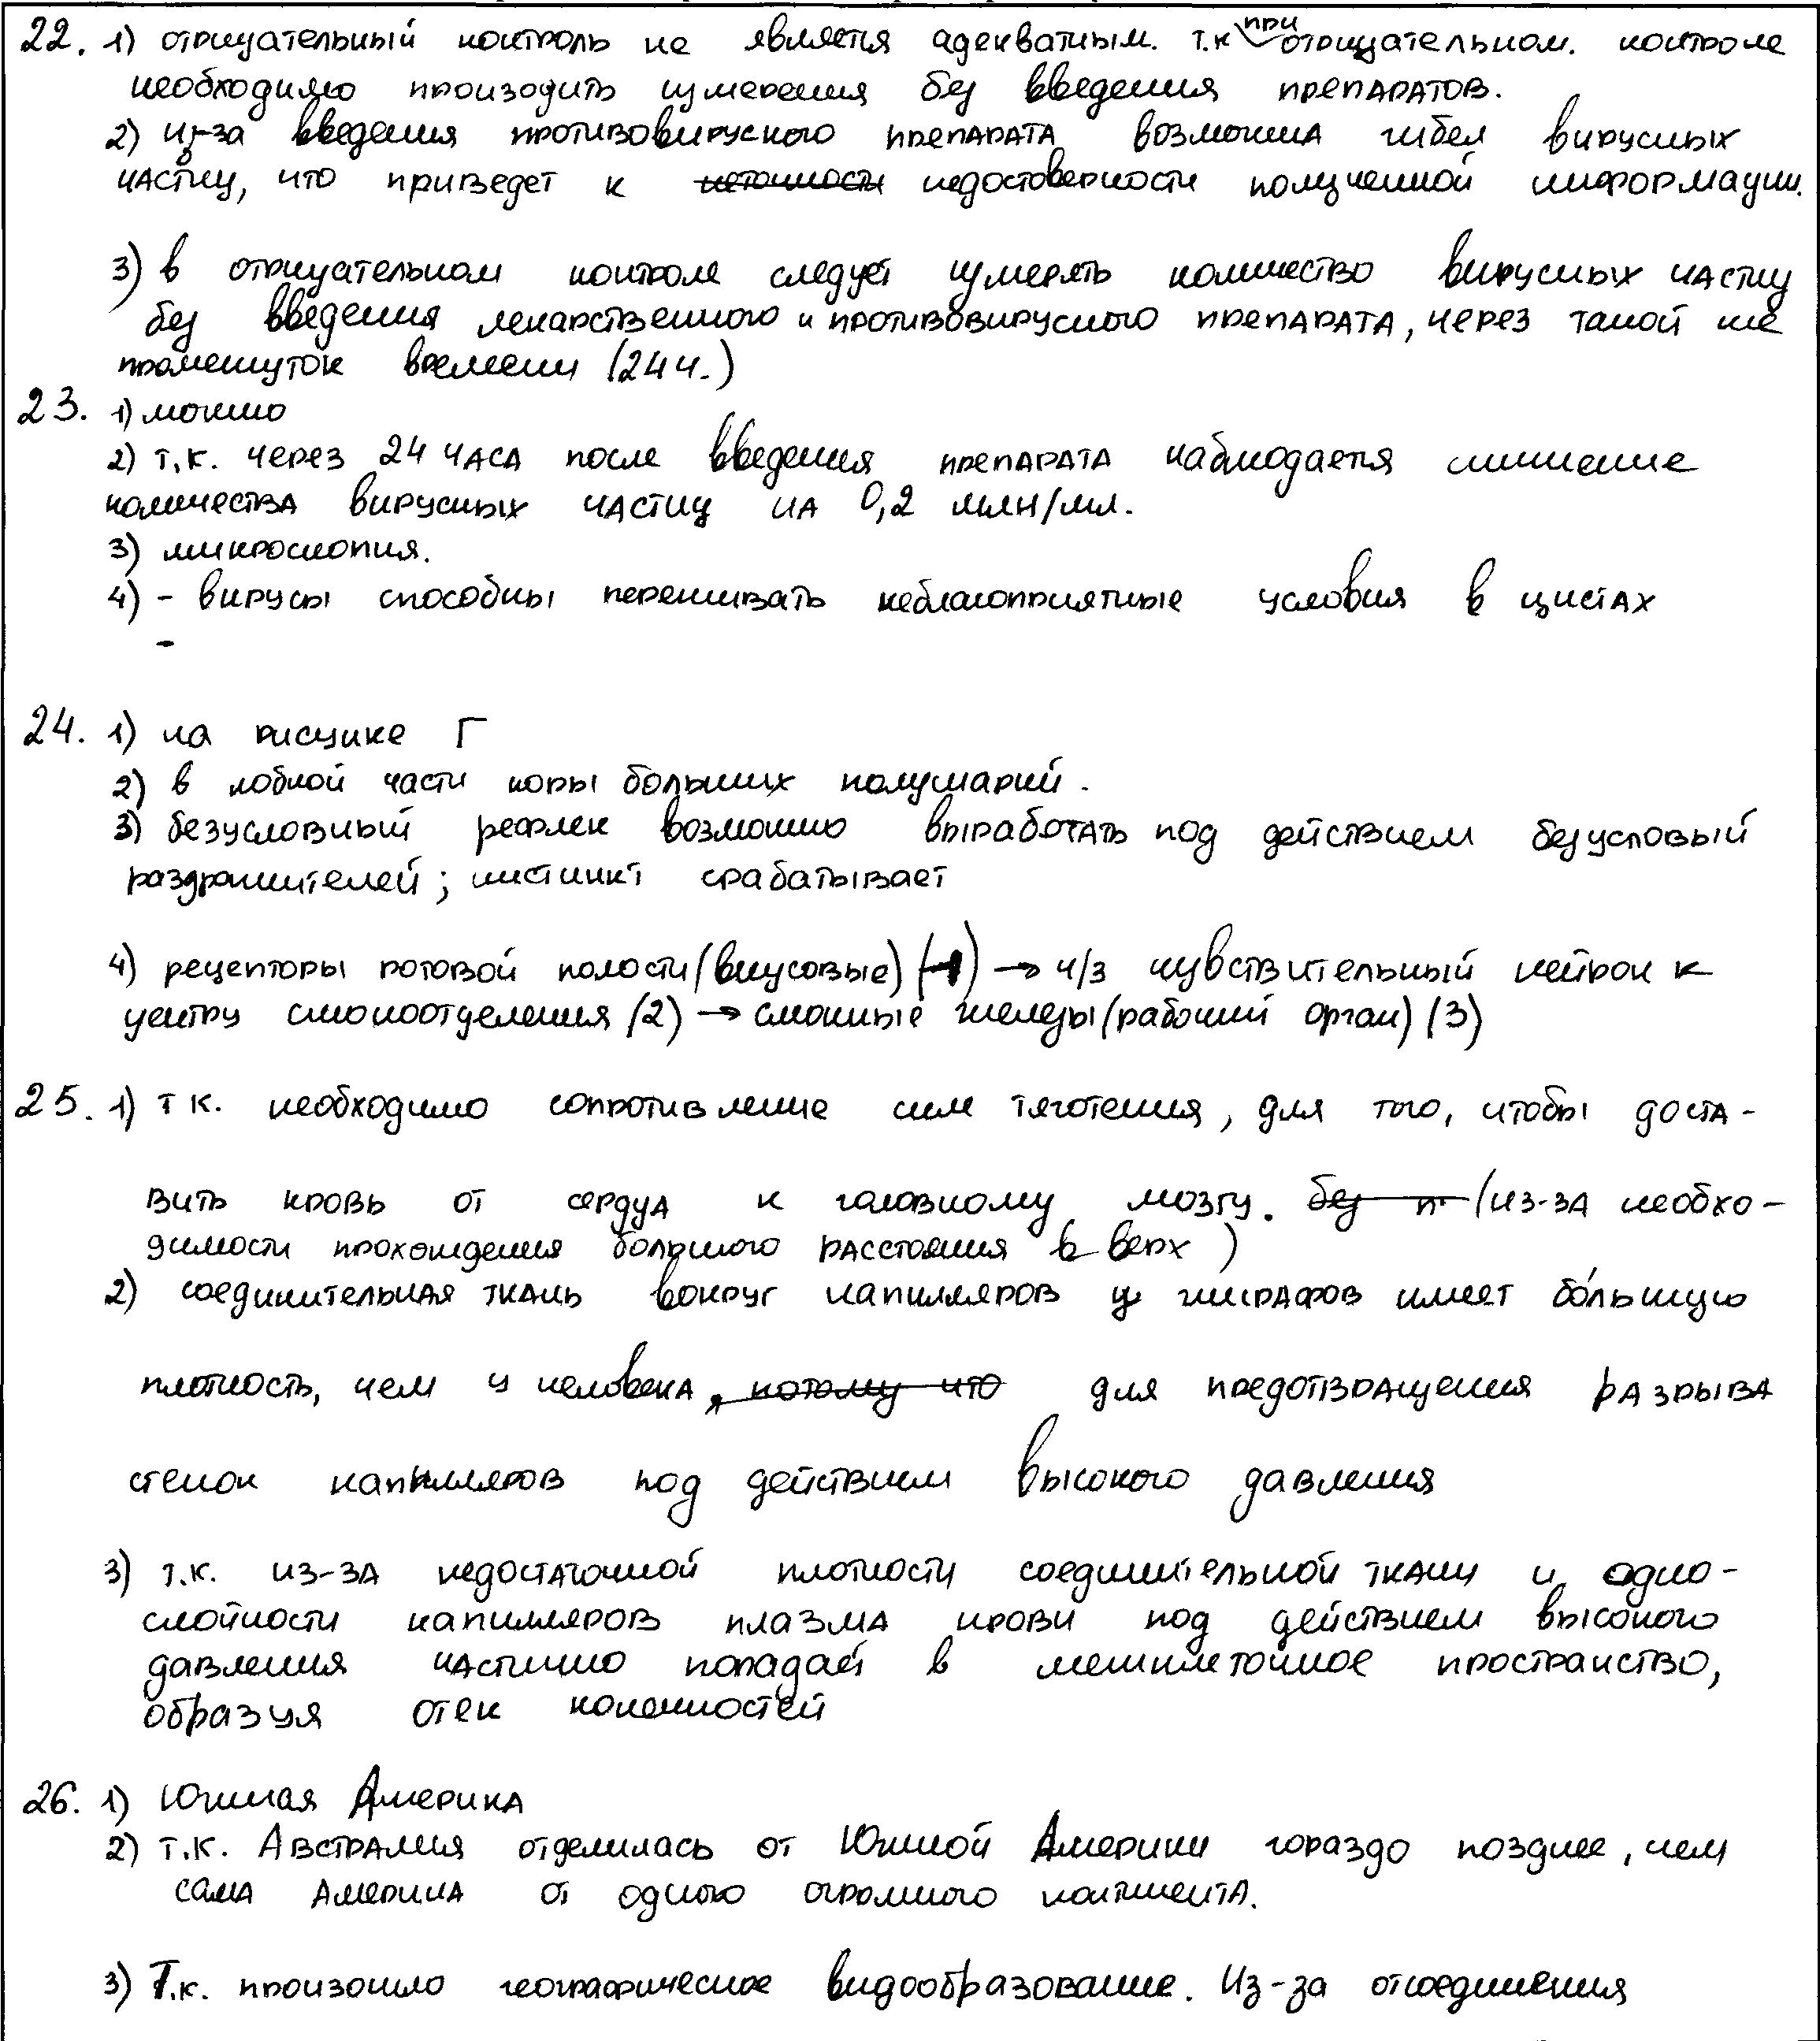 22. 1) отрицательный контроль не является адекватным. т.к при отрицательном. контроле
необходимо производить измерения без введения препаратов.
2) из-за введения противовирусного препарата возможна гибел вирусных
частиц, что приведет к неточности недостоверности полученной информации.
3) в отрицательном контроле следует измерять количество вирусных частиц
без введения лекарственного и противовирусного препарата, через такой же
промежуток времени (24 ч.)
23. 1) можно
2) т.к. через 24 часа после введения препарата наблюдается снижение
количества вирусных частиц на 0,2 млн/мл.
3) микроскопия.
4) - вирусы способны переживать неблагоприятные условия в цистах
-
24. 1) на рисунке Г
2) в лобной части коры больших полушарий.
3) безусловный рефлек возможно выработать под действием безусловый
раздражителей; инстинкт срабатывает
4) рецепторы ротовой полости (вкусовые) (1) → ч/з чувствительный нейрон к
центру слюноотделения (2) → слюнные железы (рабочий орган) (3)
25. 1) т к. необходимо сопротивление силе тяготения, для того, чтобы доста-
вить кровь от сердца к головному мозгу. без п (из-за необхо-
димости прохождения большого расстояния в верх)
2) соединительная ткань вокруг капилляров у жирафов имеет бо́льшую
плотность, чем у человека, потому что для предотвращения разрыва
стенок капилляров под действием высокого давления
3) т.к. из-за недостаточной плотности соединительной ткани и одно-
слойности капилляров плазма крови под действием высокого
давления частично попадает в межклеточное пространство,
образуя отек конечностей
26. 1) Южная Америка
2) т.к. Австралия отделилась от Южной Америки гораздо позднее, чем
сама Америка от одного огромного континента.
3) Т.к. произошло географическое видообразование. Из-за отсоединения